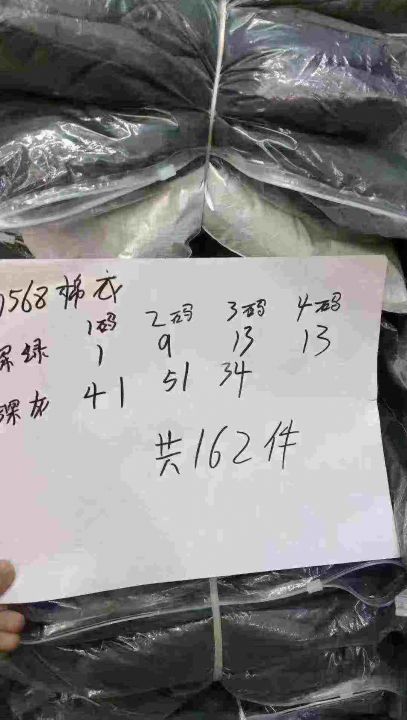 1568棉衣
1码 2码 3码 4码
深绿 1 9 13 13
深灰 41 51 34
共162件